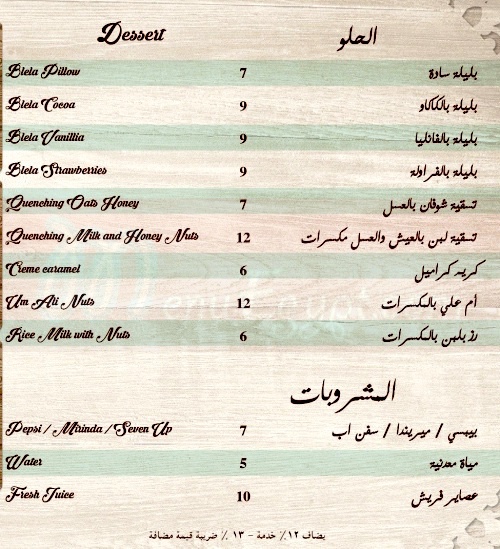 Dessert الحلو
Blela Pillow 7 بليلة سادة
Blela Cocoa 9 بليلة بالكاكاو
Blela Vanillia 9 بليلة بالفانليا
Blela Strawberries 9 بليلة بالفراولة
Quenching Oats Honey 7 تسقية شوفان بالعسل
Quenching Milk and Honey Nuts 12 تسقية لبن بالعيش والعسل مكسرات
Creme caramel 6 كريم كراميل
Um Ali Nuts 12 أم علي بالمكسرات
Rice Milk with Nuts 6 رز بلبن بالمكسرات
المشروبات
Pepsi / Mirinda / Seven Up 7 بيبسي / ميريندا / سفن اب
Water 5 مياة معدنية
Fresh Juice 10 عصاير فريش
يضاف ١٢٪ خدمة - ١٣ ٪ ضريبة قيمة مضافة